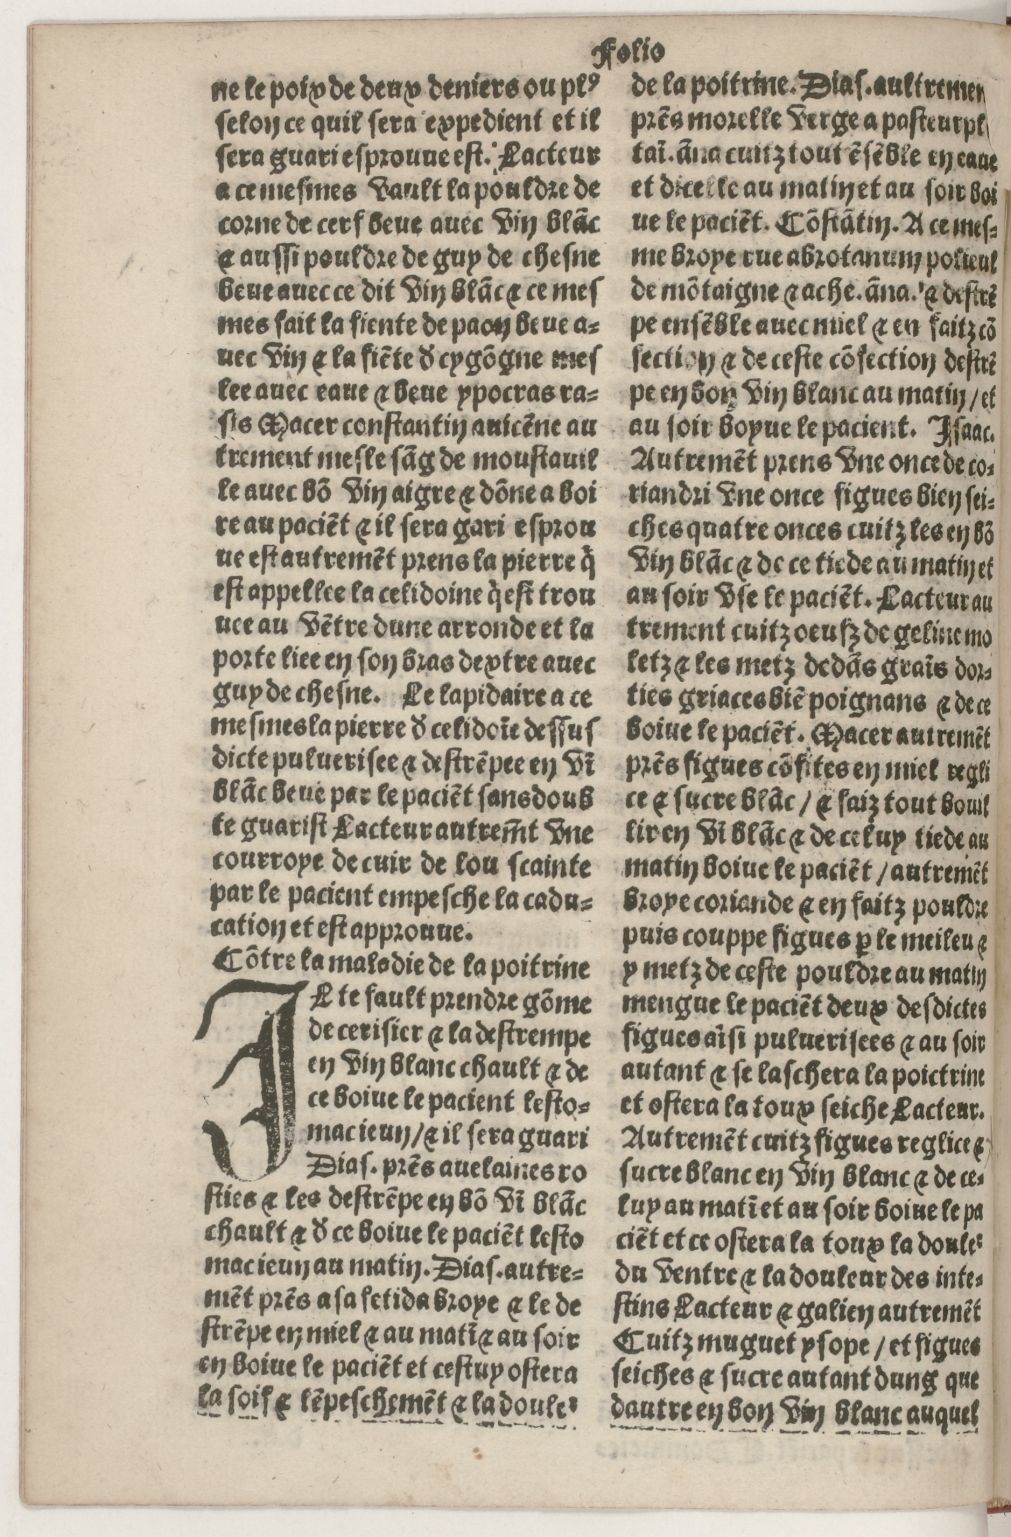 Folio
ne le poix de deux deniers ou plꝰ
selon ce quil sera expedient et il
sera guari esprouue est. Lacteur
a ce mesmes vault la pouldre de
corne de cerf beue auec vin blãc
⁊ aussi pouldre de guy de chesne
beue auec ce dit vin blãc ⁊ ce mes
mes fait la fiente de paon beue a-
uec vin ⁊ la fiẽte d̛ cygõgne mes
lee auec eaue ⁊ beue ypocras ra-
sis Macer constantin auicẽne au
trement mesle sãg de moustauil
le auec bõ vin aigre ⁊ dõne a boi
re au paciẽt ⁊ il sera gari esprou
ue est autremẽt prens la pierre q̃
est appellee la celidoine q̃ est trou
uee au vẽtre dune arronde et la
porte liee en son bras dextre auec
guy de chesne. Le lapidaire a ce
mesmes la pierre d̛ celidoĩe dessus
dicte puluerisee ⁊ destrẽpee en vĩ
blãc beue par le paciẽt sans doub
te guarist Lacteur autrem̃t vne
courroye de cuir de lou scainte
par le pacient empesche la cadu-
cation et est approuue.
Cõtre la maladie de la poitrine
IL te fault prendre gõme
de cerisier ⁊ la destrempe
en vin blanc chault ⁊ de
ce boiue le pacient lesto-
mac ieun/⁊ il sera guari
Dias. prẽs auelaines ro
sties ⁊ les destrẽpe en bõ vĩ blãc
chault ⁊ d̛ ce boiue le paciẽt lesto
mac ieun au matin. Dias. autre-
mẽt prẽs asa fetida broye ⁊ le de
strẽpe en miel ⁊ au matĩ ⁊ au soir
en boiue le paciẽt et cestuy ostera
la soif ⁊ lẽpeschemẽt ⁊ la douleᷣ
de la poitrine. Dias. aultremen
prẽs morelle verge a pasteur pl
taĩ. ãna cuitz tout ẽsẽble en eaue
et dicelle au matin et au soir boi
ue le paciẽt. Cõstãtin. A ce mes-
me broye rue abrotanum polieul
de mõtaigne ⁊ ache. ãna. ⁊ destrẽ
pe ensẽble auec miel ⁊ en faitz cõ
fection ⁊ de ceste cõfection destrẽ
pe en bon vin blanc au matin/et
au soir boyue le pacient. Isaac.
Autremẽt prens vne once de co-
riandri vne once figues bien sei-
ches quatre onces cuitz les en bõ
vin blãc ⁊ de ce tiede au matin et
au soir vse le paciẽt. Lacteur au
trement cuitz oeufz de geline mo
letz ⁊ les metz dedãs graĩs dor-
ties griaces biẽ poignans ⁊ de ce
boiue le paciẽt. Macer autremẽt
prẽs figues cõfites en miel regli
ce ⁊ sucre blãc/⁊ faiz tout bouil
lir en vĩ blãc ⁊ de celuy tiede au
matin boiue le paciẽt/autremẽt
broye coriande ⁊ en faitz pouldre
puis couppe figues ꝑ le meileu ⁊
y metz de ceste pouldre au matin
mengue le paciẽt deux desdictes
figues aĩsi puluerisees ⁊ au soir
autant ⁊ se laschera la poictrine
et ostera la toux seiche Lacteur.
Autremẽt cuitz figues reglice ⁊
sucre blanc en vin blanc ⁊ de ce-
luy au matĩ et au soir boiue le pa
ciẽt et ce ostera la toux la douleᷣ
du ventre ⁊ la douleur des inte-
stins Lacteur ⁊ galien autremẽt
Cuitz muguet ysope/et figues
seiches ⁊ sucre autant dung que
dautre en bon vin blanc auquel